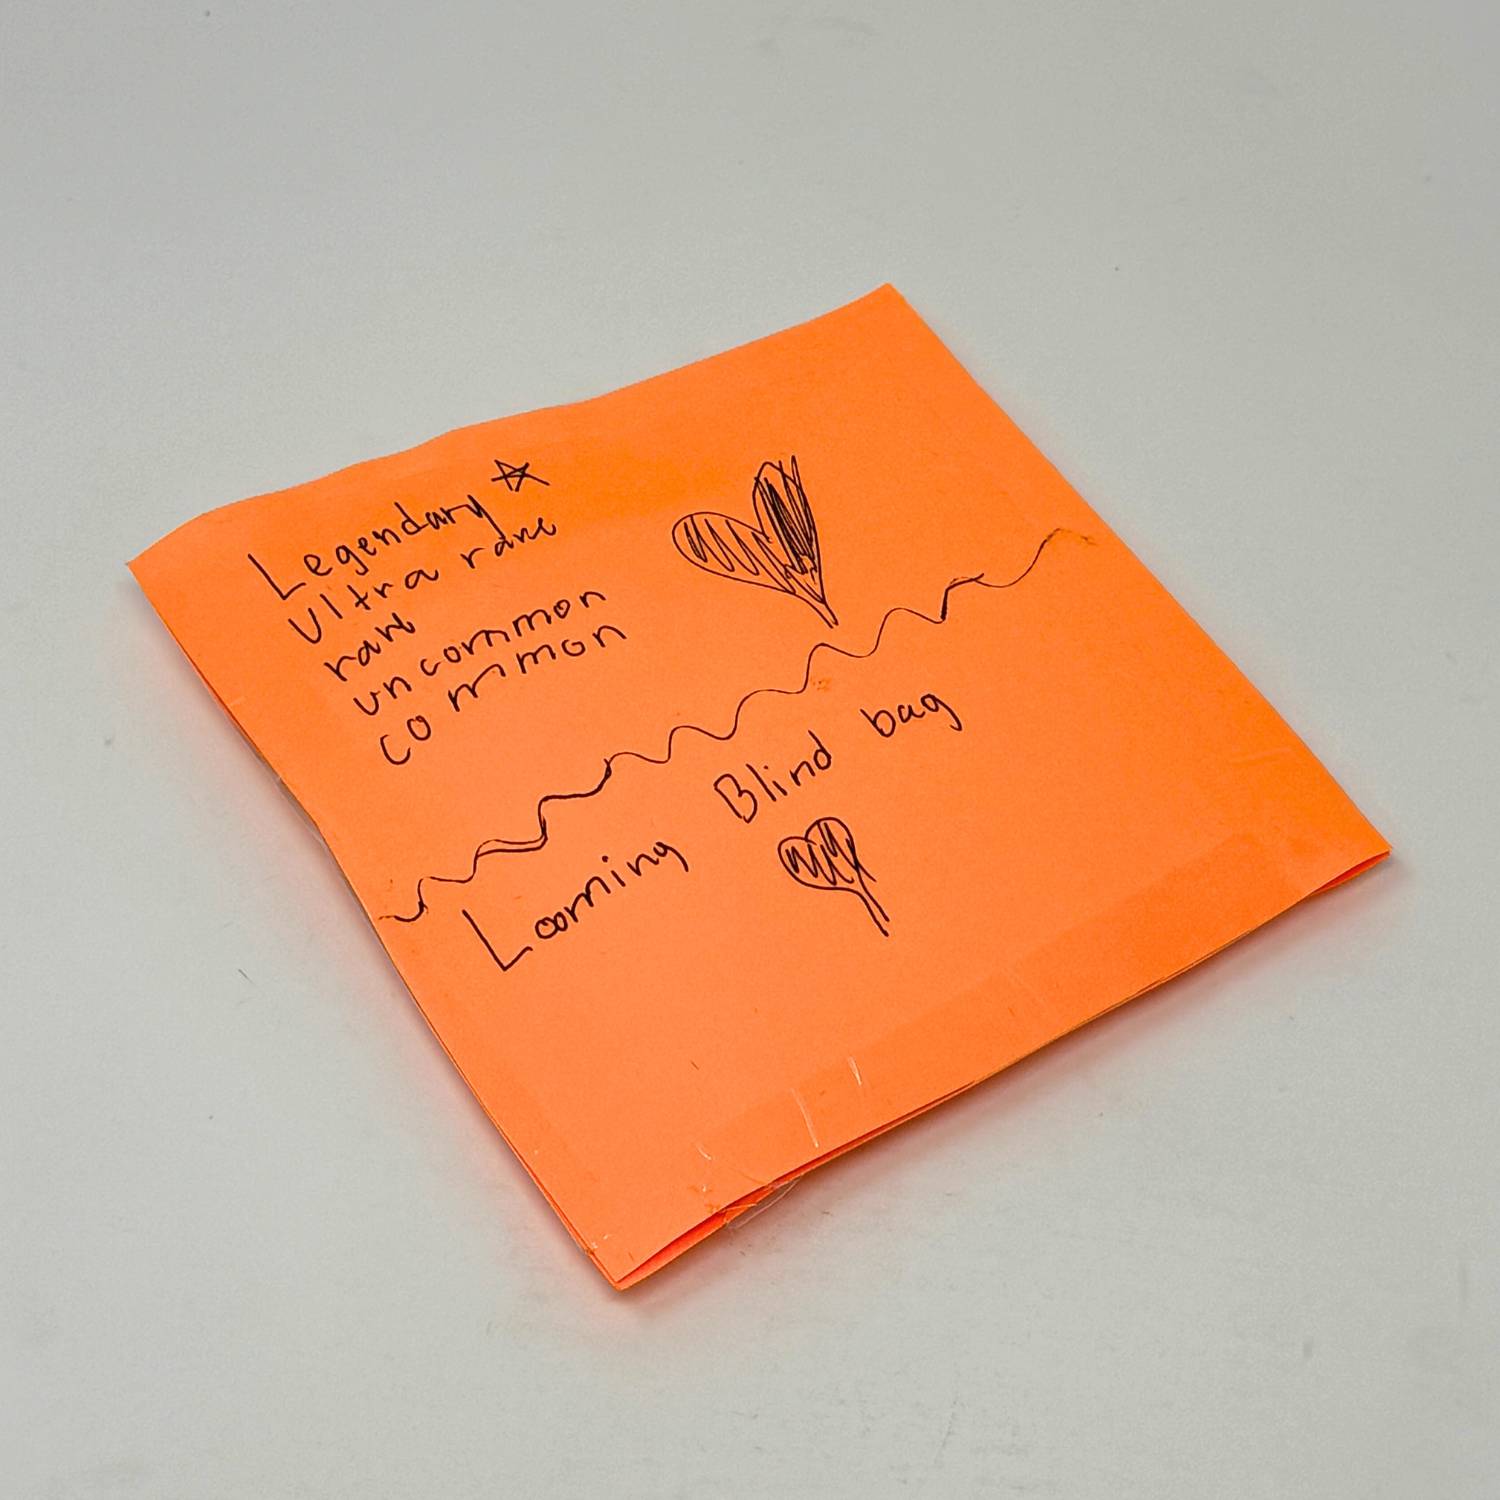 Legendary
Ultra rare
rare
uncommon
common
Looming Blind bag